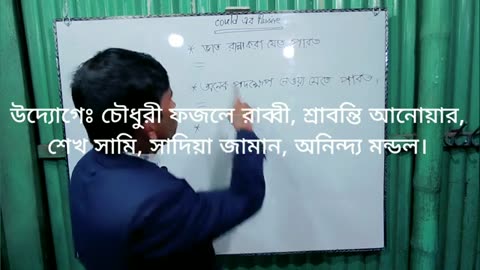 could এর Passive
* ভাত রান্না করা যেতে পারত
=
* অনেক পদক্ষেপ নেওয়া যেতে পারত,
=
*
উদ্যোগেঃ চৌধুরী ফজলে রাব্বী, শ্রাবন্তি আনোয়ার,
শেখ সামি, সাদিয়া জামান, অনিন্দ্য মন্ডল।